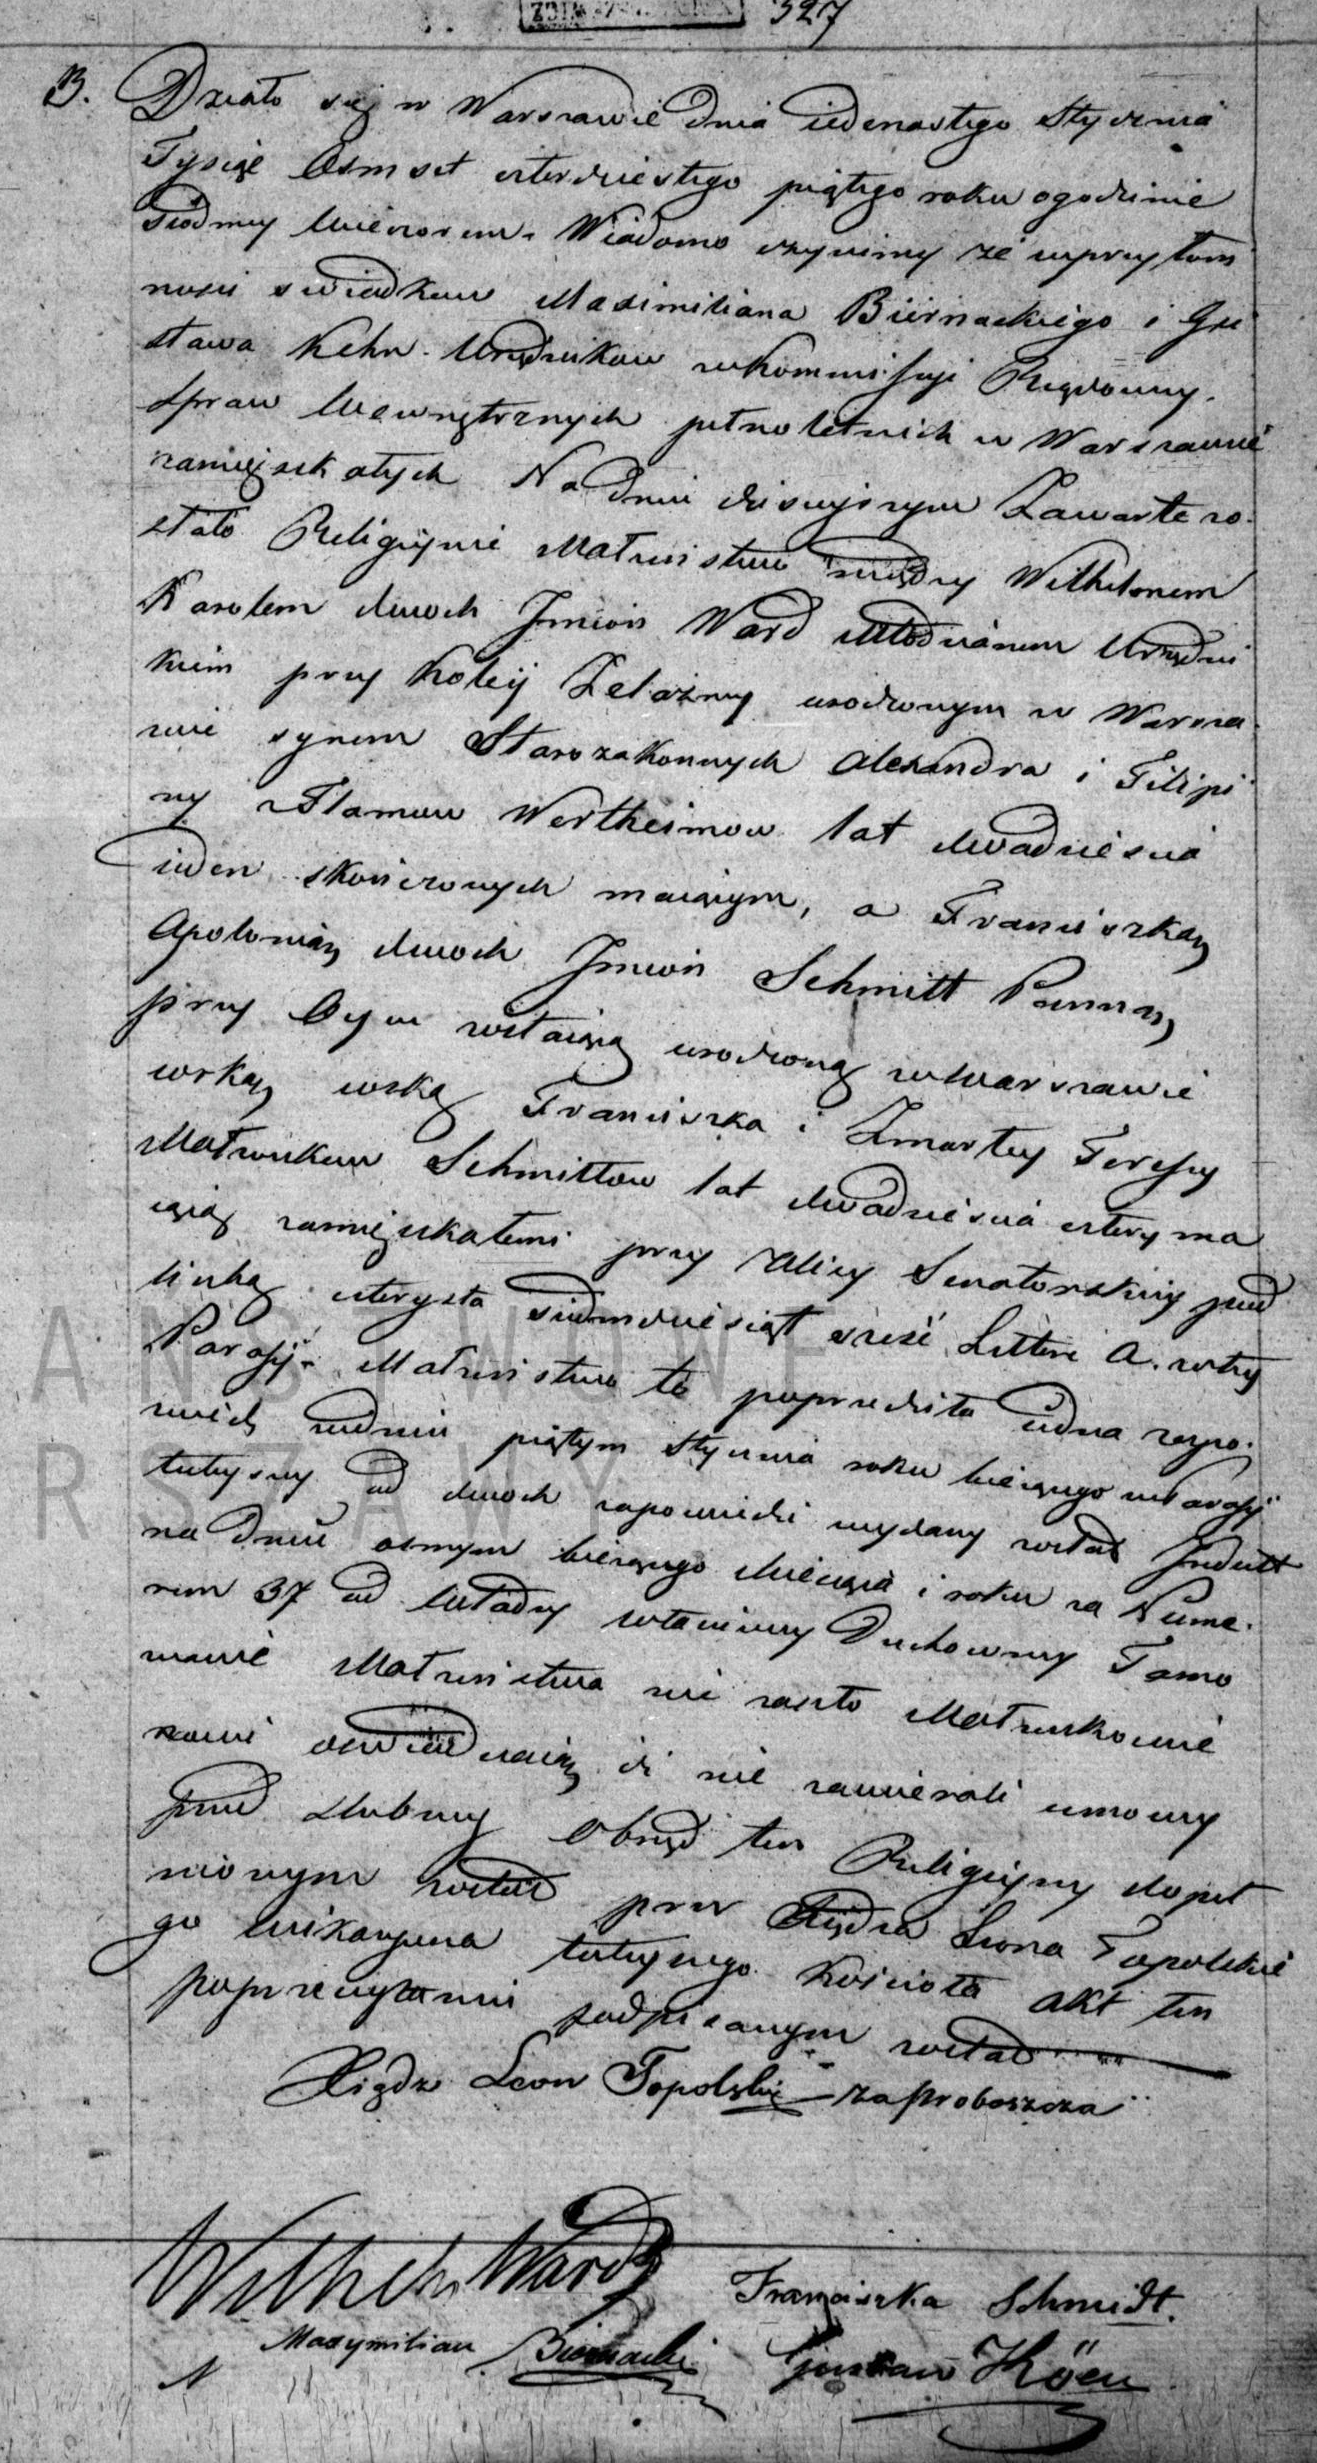 327
13. Działo się w Warszawie dnia iedenastego Stycznia
Tysiąc Osmset czterdziestego piątego roku o godzinie
siodmey wieczorem. Wiadomo czynimy że w przytom
nosci swiadkow Maximiliana Biernackiego i Gu
stawa Kehn Urzędnikow w Kommissyi Rządowey
Spraw Wewnętrznych pełnoletnich w Warszawie
zamieszkałych Na dniu dzisieyszym Zawarte zo
stało Religiyne Małzeństwo między Wilhelmem
Karolem dwoch Jmion Ward Młodzianem Urzędni
kiem przy Koleij Żelazney urodzonym w Warsza
wie synem Starozakonnych Alexandra i Filipi
ny z Flamow Wertheimow lat dwadziescia
ieden skończonych maiącym, a Franciszką
Apolonią dwoch Jmion Schmitt Panną
przy Oycu zostaiącą urodzoną w Warszawie
corką Franciszka i Zmarłey Teressy
Małżonkow Schmittow lat dwadziescia cztery ma
iącą zamieszkałemi przy Ulicy Senatorskiey pod
liczbą czterysta siedmdziesiąt szesć Littera A. w tey
Parafij. Małzeństwo to poprzedziła iedna zapo
wiedz w dniu piątym Stycznia roku bieżącego w Parafij
tuteyszey od dwoch zapowiedzi wydany został Jndult
na dniu osmym bieżącego Miesiąca i roku za Nume
rem 37 od Władzy własciwey Duchowney Tamo
wanie Małzenstwa nie zaszło Małżonkowie
nowi oswiadczaią iż nie zawierali umowy
przed slubney Obrzęd ten Religiyny dopeł
nionym został przez Xiędza Leona Topolskie
go Wikaryusza tuteyszego Kościoła Akt ten
po przeczytaniu podpisanym został
Xiądz Leon Topolski za Proboszcza
Wilhelm Ward
Franciszka Schmidt.
Maxymilian Biernacki
Gustaw Köen
ANSTWOWE
RSZAWY